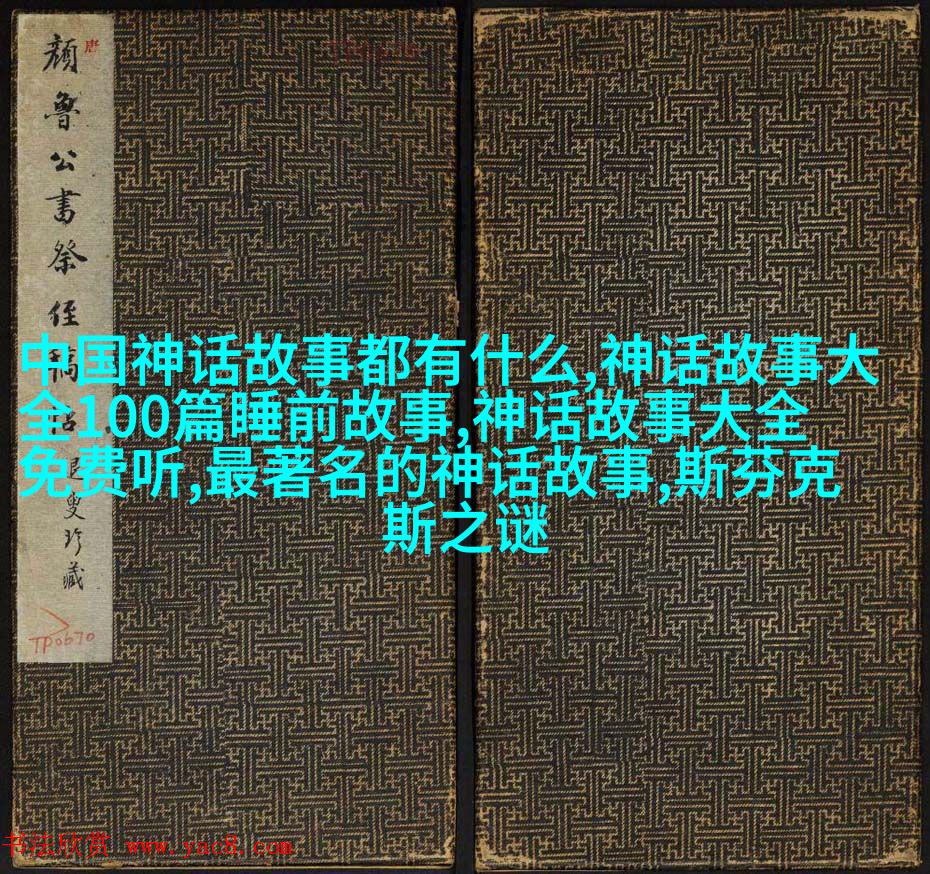 唐
颜鲁公书祭侄稿
退叟珍藏
TP0670
中国神话故事都有什么,神话故事大
全100篇睡前故事,神话故事大全
免费听,最著名的神话故事,斯芬克
斯之谜
书法欣赏 www.yac8.com